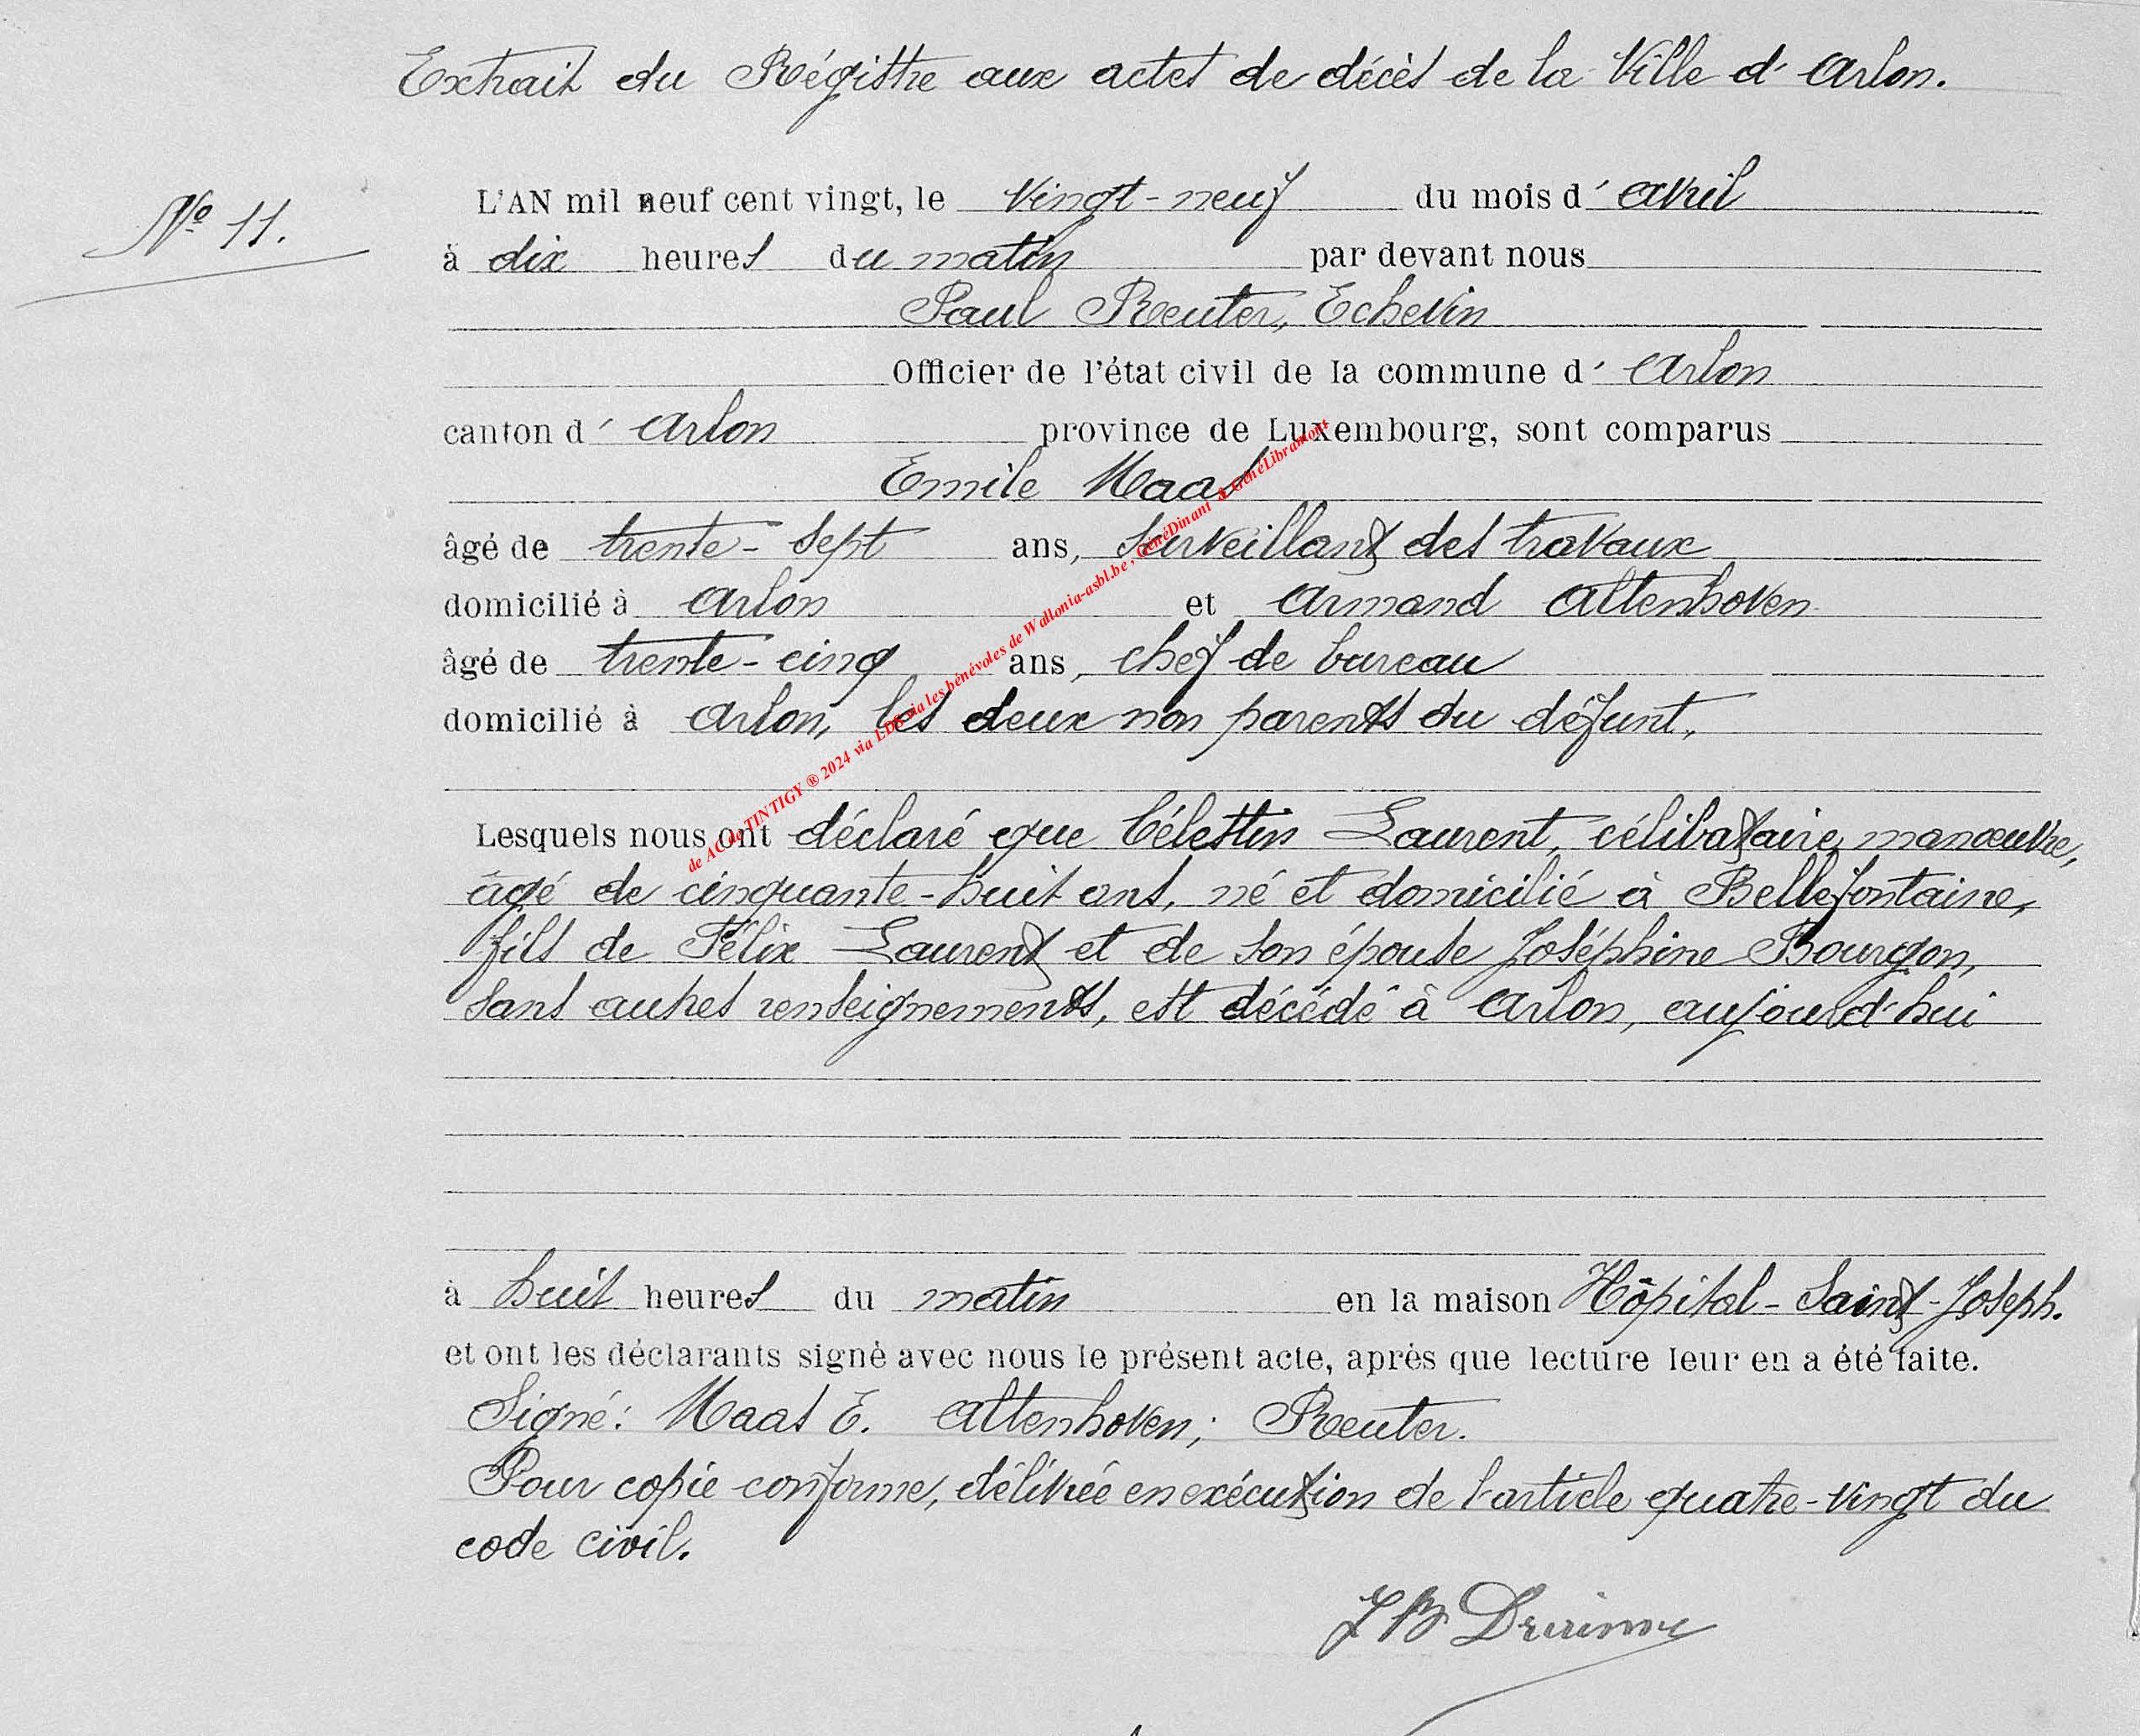 Extrait du Régistre aux actes de décès de la Ville d'Arlon.
N° 11.
L'AN mil neuf cent vingt, le vingt-neuf du mois d'avril
à dix heures du matin par devant nous
Paul Reuter, Echevin
Officier de l'état civil de la commune d'Arlon
canton d'Arlon province de Luxembourg, sont comparus
Emile Maas
âgé de trente-sept ans, surveillant des travaux
domicilié à Arlon et Armand Altenhoven
âgé de trente-cinq ans, chef de bureau
domicilié à Arlon, les deux non parents du défunt,
Lesquels nous ont déclaré que Célestin Laurent, célibataire, manœuvre,
âgé de cinquante-huit ans, né et domicilié à Bellefontaine,
fils de Félix Laurent et de son épouse Joséphine Bourgon,
sans autres renseignements, est décédé à Arlon, aujourd'hui
à huit heures du matin en la maison Hôpital-Saint-Joseph.
et ont les déclarants signé avec nous le présent acte, après que lecture leur en a été faite.
Signé: Maas E. Altenhoven; Reuter.
Pour copie conforme, délivrée en exécution de l'article quatre-vingt du
code civil.
J B
de AC de TINTIGY ® 2024 via LDS via les bénévoles de Wallonia-asbl.be, GénéDinant & GénéLibramont